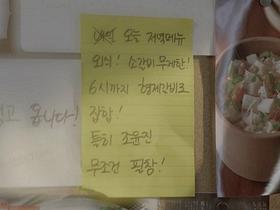 오늘 저녁메뉴
외식! 소갈비 무제한!
6시까지 형제갈비로
집합!
특히 조윤진
무조건 필참!
고 옵니다!